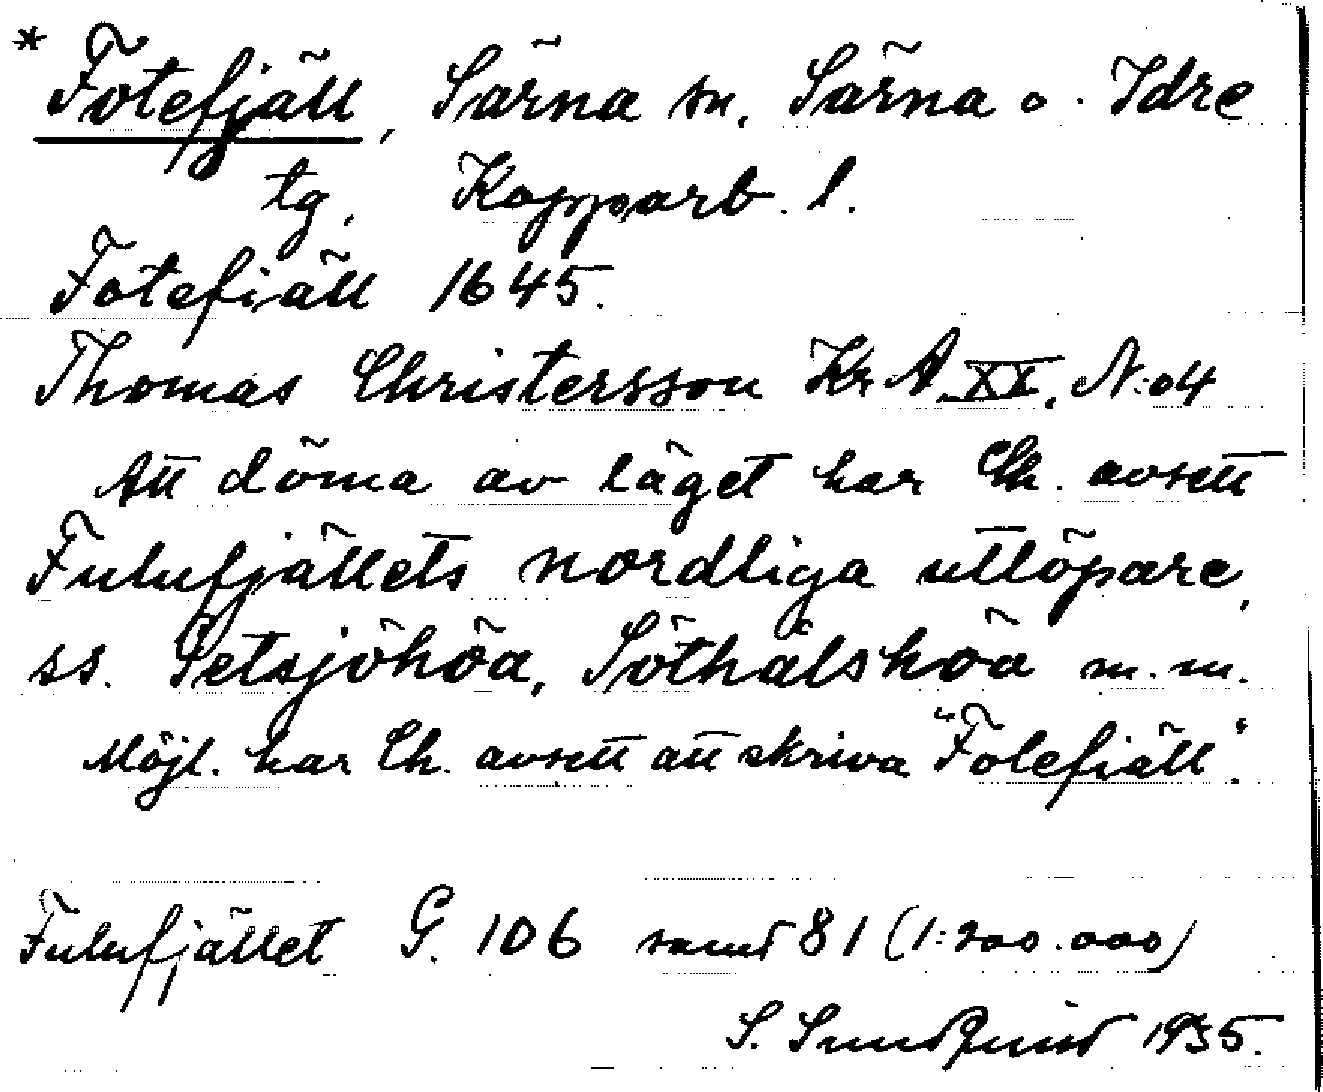 * Fotefjäll, Särna sn, Särna o. Idre
tg, Kopparb. l.
Fotefiäll 1645.
Thomas Christersson Kr A. XX, N:o4
Att döma av läget har Ch. avsett
Fulufjällets nordliga utlöpare,
ss. Getsjöhöa, Söthålshöa m.m.
Möjl. har Ch. avsett att skriva "Folefiäll".
Fulufjället G. 106 samt 81 (1:200.000)
S. Sundquist 1935.